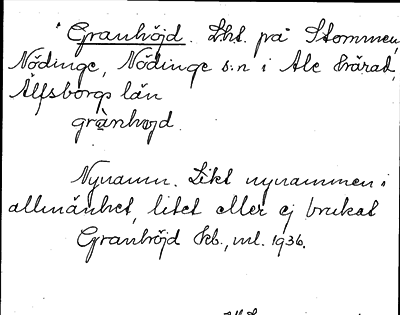 Granhöjd. Lht. på Stommen,
Nödinge, Nödinge s:n i Ale härad,
Älfsborgs län
grànhøjd.
Nynamn. Likt nynammen i
allmänhet, litet eller ej brukat
Granhöjd Kb., ml. 1936.